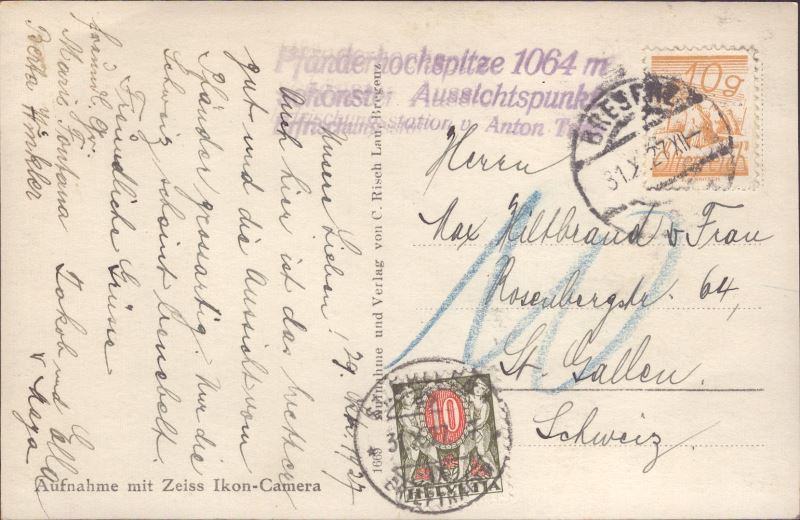 Pfänderhochspitze 1064 m
schönster Aussichtspunkt
Erfrischungsstation v. Anton
10 g
BREGENZ
31.X.27 XI
Herrn
Max Hiltbrand & Frau
Rosenbergstr. 64,
St. Gallen.
Schweiz.
10
10
HELVETIA
1669 Aufnahme und Verlag von C. Risch Lau, Bregenz
29. Okt. 1927
Unsere Lieben!
Auch hier ist das Wetter
gut und die Aussicht vom
Pfänder grossartig. Nur die
Schweiz scheint benebelt.
Freundliche Grüsse
Jakob und Ella
& Maya
freundl. Gr.
Marie Fontana
Berta Winkler
Aufnahme mit Zeiss Ikon-Camera